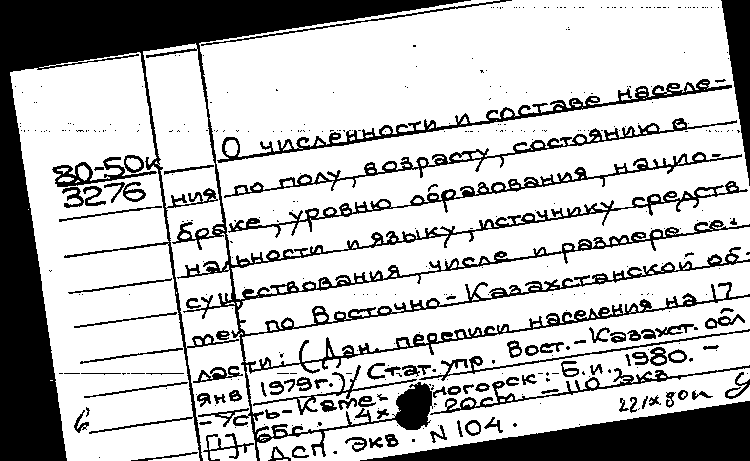 80-50к
3276
О численности и составе населе-
ния по полу, возрасту, состоянию в
браке, уровню образования, нацио-
нальности и языку, источнику средств
существования, числе и размере се-
мей по Восточно-Казахстанской об-
ласти: (Дан. переписи населения на 17
янв 1979г.)/Стат. упр. Вост.-Казахст. обл
- Усть-Каме- ногорск: Б.и., 1980. -
[1], 65с.; 14х20см. - 110 экз.
ДСП. Экз. N 104.
22 IX 80г
б